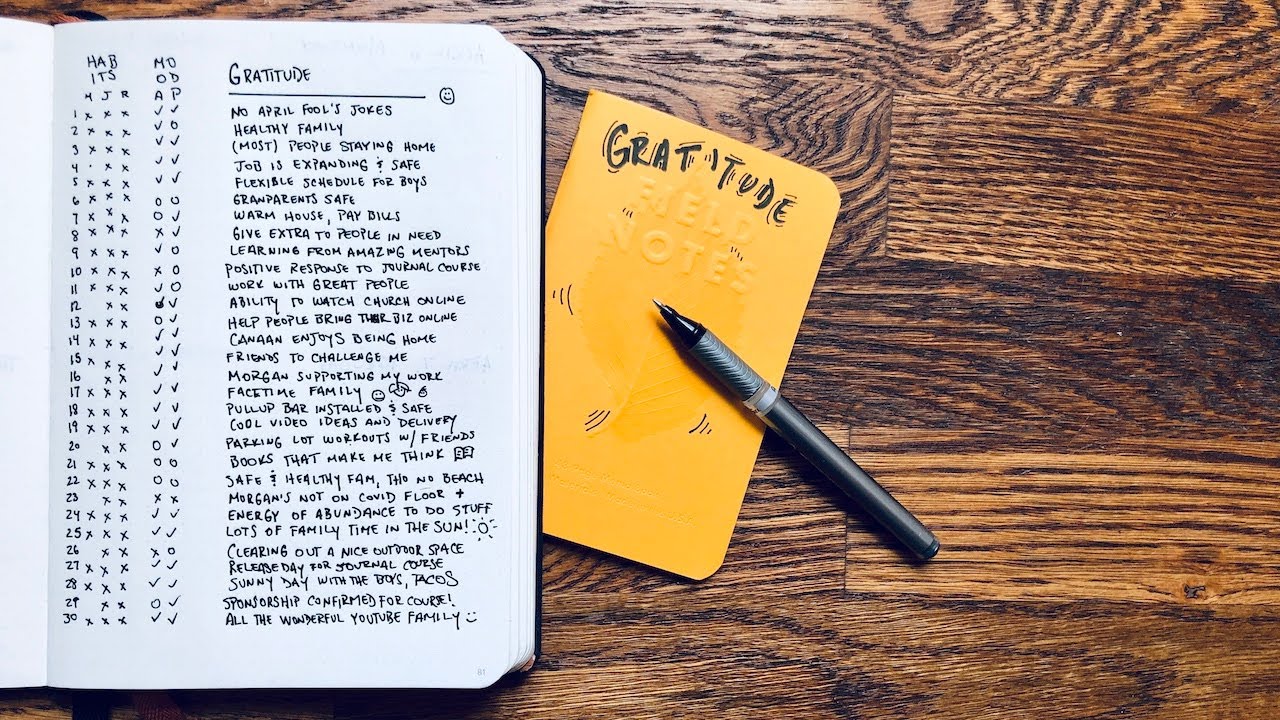 HAB MO
ITS OD GRATITUDE
M J R A P
1 x x x ✓ ✓ NO APRIL FOOL'S JOKES
2 x x x ✓ O HEALTHY FAMILY
3 x x x ✓ ✓ (MOST) PEOPLE STAYING HOME
4 · x x ✓ ✓ JOB IS EXPANDING & SAFE
5 x x x ✓ ✓ FLEXIBLE SCHEDULE FOR BOYS
6 x x x O O GRANPARENTS SAFE
7 x x x O ✓ WARM HOUSE, PAY BILLS
8 x x x x ✓ GIVE EXTRA TO PEOPLE IN NEED
9 x x x ✓ O LEARNING FROM AMAZING MENTORS
10 x x x x O POSITIVE RESPONSE TO JOURNAL COURSE
11 x x x ✓ O WORK WITH GREAT PEOPLE
12 x x ✓ ABILITY TO WATCH CHURCH ONLINE
13 x x x O ✓ HELP PEOPLE BRING THEIR BIZ ONLINE
14 x x x ✓ ✓ CANAAN ENJOYS BEING HOME
15 x x x ✓ ✓ FRIENDS TO CHALLENGE ME
16 x x ✓ ✓ MORGAN SUPPORTING MY WORK
17 x x x ✓ ✓ FACETIME FAMILY
18 x x x ✓ ✓ PULLUP BAR INSTALLED & SAFE
19 x x x ✓ ✓ COOL VIDEO IDEAS AND DELIVERY
20 x x O ✓ PARKING LOT WORKOUTS W/ FRIENDS
21 x x x O O BOOKS THAT MAKE ME THINK
22 x x x O O SAFE & HEALTHY FAM, THO NO BEACH
23 x x x x MORGAN'S NOT ON COVID FLOOR +
24 x x x ✓ ✓ ENERGY OF ABUNDANCE TO DO STUFF
25 x x x ✓ ✓ LOTS OF FAMILY TIME IN THE SUN!
26 x x x O CLEARING OUT A NICE OUTDOOR SPACE
27 x x x ✓ ✓ RELEASE DAY FOR JOURNAL COURSE
28 x x x ✓ ✓ SUNNY DAY WITH THE BOYS, TACOS
29 x x O ✓ SPONSORSHIP CONFIRMED FOR COURSE!
30 x x x ✓ ✓ ALL THE WONDERFUL YOUTUBE FAMILY
81
GRATITUDE
FIELD
NOTES